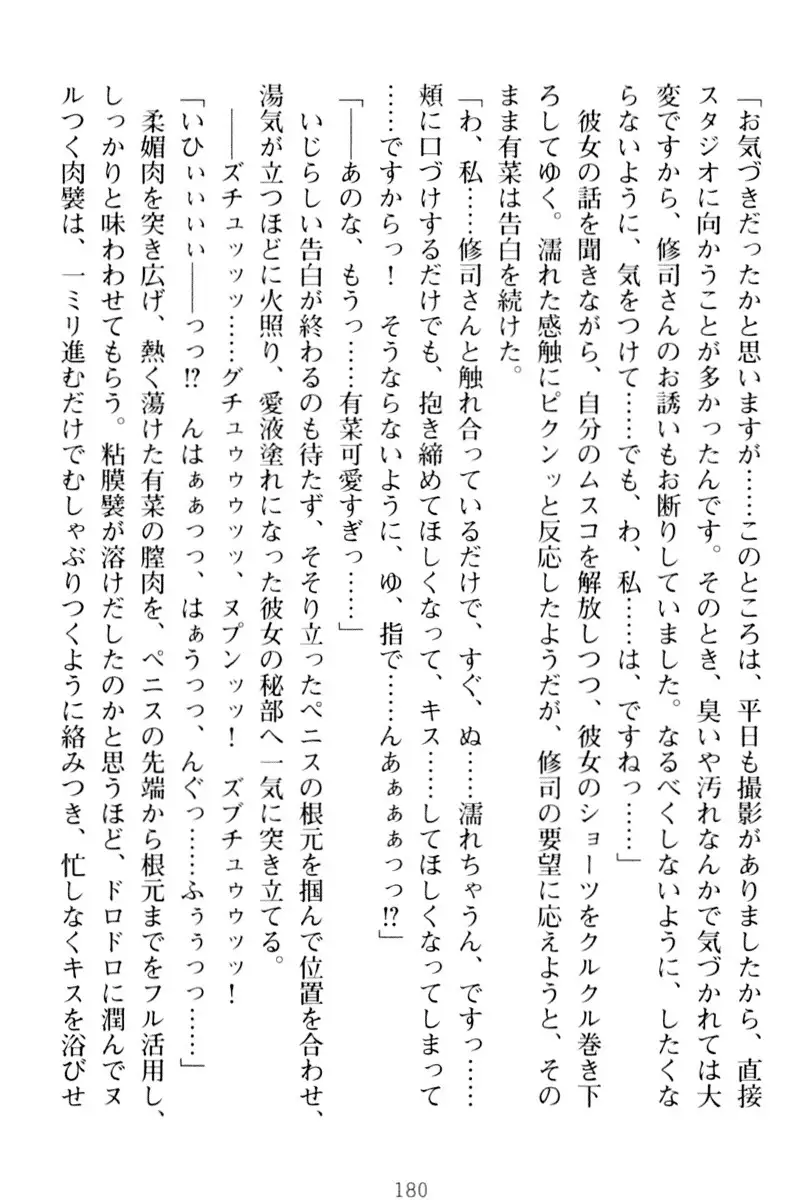 「お気づきだったかと思いますが……このところは、平日も撮影がありましたから、直接
スタジオに向かうことが多かったんです。そのとき、臭いや汚れなんかで気づかれては大
変ですから、修司さんのお誘いもお断りしていました。なるべくしないように、したくな
らないように、気をつけて……でも、わ、私……は、ですねっ……」
　彼女の話を聞きながら、自分のムスコを解放しつつ、彼女のショーツをクルクル巻き下
ろしてゆく。濡れた感触にピクンッと反応したようだが、修司の要望に応えようと、その
まま有菜は告白を続けた。
「わ、私……修司さんと触れ合っているだけで、すぐ、ぬ……濡れちゃうん、ですっ……
頬に口づけするだけでも、抱き締めてほしくなって、キス……してほしくなってしまって
……ですからっ！　そうならないように、ゆ、指で……んあぁぁぁっっ!?」
「――あのな、もうっ……有菜可愛すぎっ……」
　いじらしい告白が終わるのも待たず、そそり立ったペニスの根元を掴んで位置を合わせ、
湯気が立つほどに火照り、愛液塗れになった彼女の秘部へ一気に突き立てる。
　――ズチュッッッ……グチュゥゥゥッッ、ヌプンッッ！　ズブチュゥゥッッ！
「いひぃぃぃぃ――っっ!?　んはぁぁっっ、はぁうっっ、んぐっ……ふぅぅっっ……」
　柔媚肉を突き広げ、熱く蕩けた有菜の膣肉を、ペニスの先端から根元までをフル活用し、
しっかりと味わわせてもらう。粘膜襞が溶けだしたのかと思うほど、ドロドロに潤んでヌ
ルつく肉襞は、一ミリ進むだけでむしゃぶりつくように絡みつき、忙しなくキスを浴びせ
180